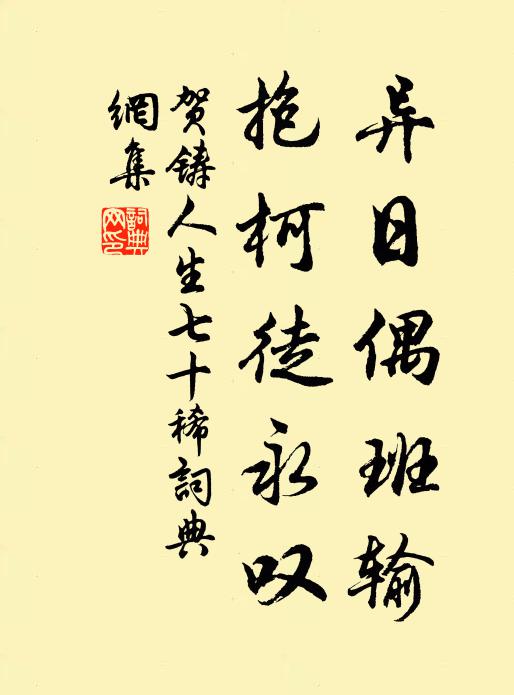 异日偶班输
抱柯徒永叹
贺鋳人生七十稀詞典
網集
詞典
网印